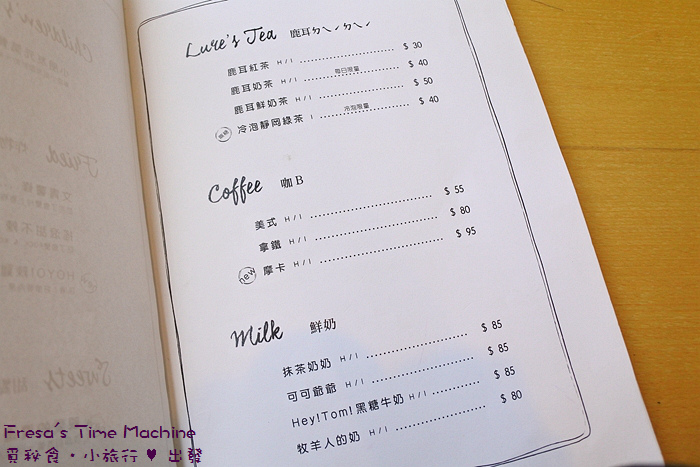 Lure's Tea 鹿耳ㄉㄟˊㄉㄟˊ
鹿耳紅茶 H/I $ 30
鹿耳奶茶 H/I 每日限量 $ 40
鹿耳鮮奶茶 H/I $ 50
冷泡靜岡綠茶 I 冷泡限量 $ 40
Coffee 咖B
美式 H/I $ 55
拿鐵 H/I $ 80
new 摩卡 H/I $ 95
Milk 鮮奶
抹茶奶奶 H/I $ 85
可可爺爺 H/I $ 85
Hey!Tom!黑糖牛奶 H/I $ 85
牧羊人的奶 H/I $ 80
Children's
Fried
Sweets
Fresa's Time Machine
覓秘食‧小旅行 ♥ 出發